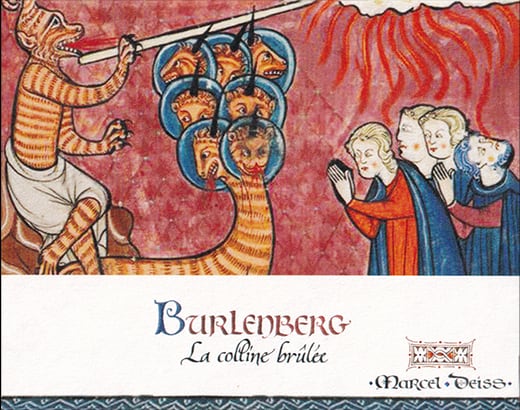 BURLENBERG
La colline brûlée
·MARCEL·DEISS·